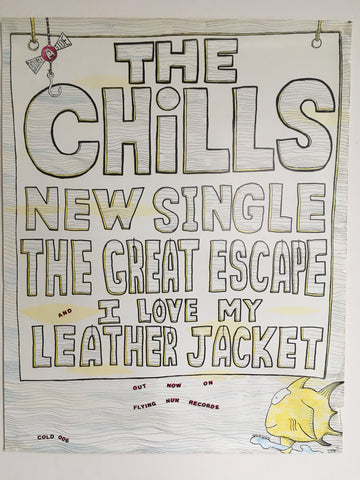 THE
CHiLLS
NEW SINGLE
THE GREAT ESCAPE
AND
I LOVE MY
LEATHER JACKET
OUT NOW ON
FLYING NUN RECORDS
COLD 006